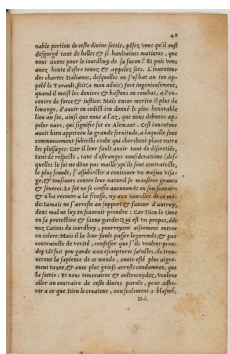 48
nable portion de ceste divine sottie, pésez vous qu'il eust
desgorgé tant de belles & si haultaines matieres, que
nous avons pour le iourdhuy de sa façon? Et puis vous
avez honte d'estre tenuz & appelez sotz. L'inventeur
des chartes Italianes, desquelles on s'esbat au ieu ap-
pelé le Tarault, feit (a mon advis) fort ingenieusement,
quand il meist les deniers & bastons en combat, a l'en-
contre de force & iustice: Mais encor merita il plus de
louange, d'avoir en cedict ieu donné le plus honorable
lieu au sot, ainsi que nous a l'az, que nous debvons ap-
peler nars, qui signifie sot en Alemant.
aussi bien apperceu la grande servitude, a laquelle sont
communement subiectz ceulx qui cherchent place entre
les plus sages: Car il leur fault avoir tant de discretiõs,
tant de respectz, tant d'estranges considerations (des-
quelles le sot ne done pas maille) qu'ilz sont contrainctz,
le plus souvét, s'assubiectir a contenir un mesme visa-
ge, & tousiours contre leur naturel se monstrer graves
& severes. Le sot ne se conste aucunemét en son sçavoir,
& n'ha recours a la finesse, ny aux cautelles de ce mõ-
de: Iamais ne s'arreste au support & faveur d'autruy,
dont mal ne luy en sçauroit prendre: Car Dieu le tient
en sa protection & sauve garde: Qui est ce propos, dõt
noz Catons du iourdhuy, pourroyent aisement entrer
en colere: Mais il la leur fault passer legerement, & par
contraincte de verité, confesser que s'ilz veulent pren-
dre garde aux escriptures sainctes, ilz trou-
veront la sapience de ce monde, avoir esté plus aigre-
ment taxee, & avec plus griefz arrestz condamnee, que
la sottie: Et nous temeraires & oultrecuydez, voulons
aller au contraire de ceste divine parole, pour adhe-
rer a ce que Dieu le createur, non seulement a blasmé,